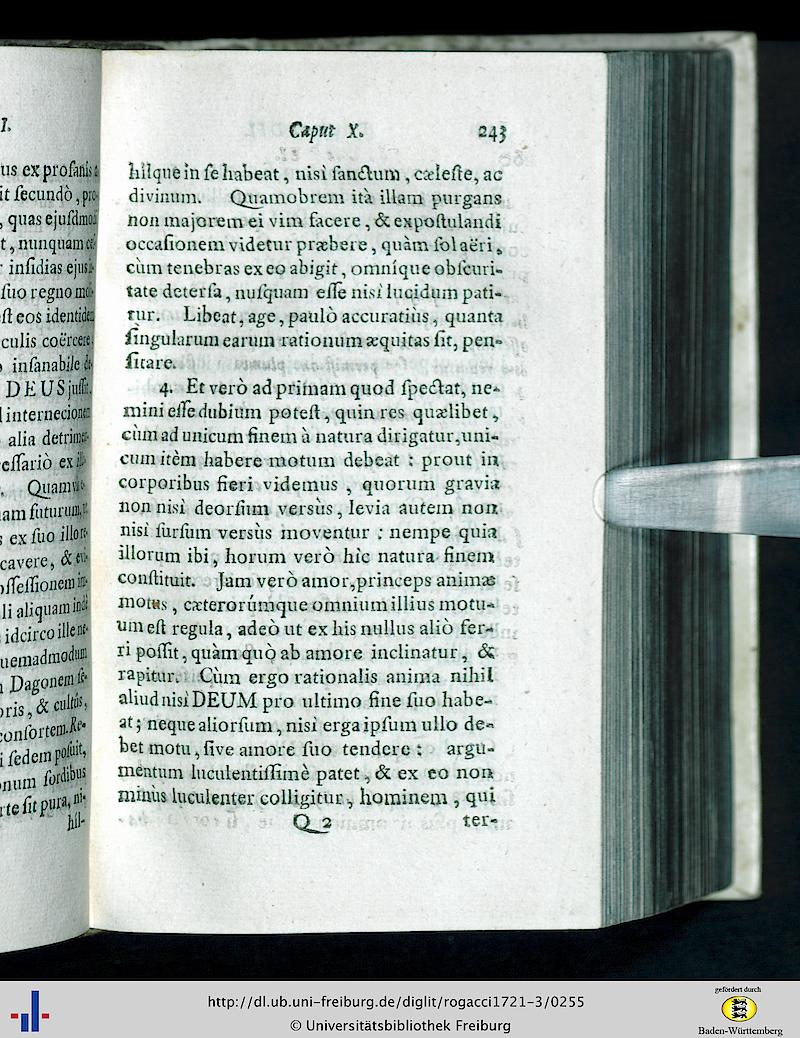 I.
us ex profanis
it secundò, pro-
, quas ejusdmodi
t, nunquam
r insidias ejus
suo regno
st eos identidem
culis coërcere
insanabile
DEUS jussit
internecionem
alia detrimen-
essariò ex
Quamvis
am futurum,
s ex suo illo
cavere, &
ossessionem
li aliquam
idcirco ille ne-
uemadmodum
Dagonem se-
oris, & cultûs,
consortem. Re-
i sedem posuit,
onum sordibus
rte sit pura, ni-
hil-
Caput X. 243
hilque in se habeat, nisì sanctum, cæleste, ac
divinum. Quamobrem ità illam purgans
non majorem ei vim facere, & expostulandi
occasionem videtur præbere, quàm sol aëri,
cùm tenebras ex eo abigit, omníque obscuri-
tate detersa, nusquam esse nisì lucidum pati-
tur. Libeat, age, paulò accuratiùs, quanta
singularum earum rationum æquitas sit, pen-
sitare.
4. Et verò ad primam quod spectat, ne-
mini esse dubium potest, quin res quælibet,
cùm ad unicum finem à natura dirigatur, uni-
cum itèm habere motum debeat : prout in
corporibus fieri videmus , quorum gravia
non nisì deorsum versùs, levia autem non
nisì sursum versùs moventur : nempe quia
illorum ibi, horum verò hìc natura finem
constituit. Jam verò amor, princeps animæ
motus, cæterorúmque omnium illius motu-
um est regula, adeò ut ex his nullus aliò fer-
ri possit, quàm quò ab amore inclinatur, &
rapitur. Cùm ergo rationalis anima nihil
aliud nisì DEUM pro ultimo fine suo habe-
at; neque aliorsum, nisì erga ipsum ullo de-
bet motu, sive amore suo tendere : argu-
mentum luculentissimè patet, & ex eo non
minùs luculenter colligitur, hominem, qui
Q 2 ter-
http://dl.ub.uni-freiburg.de/diglit/rogacci1721-3/0255
© Universitätsbibliothek Freiburg
gefördert durch
Baden-Württemberg